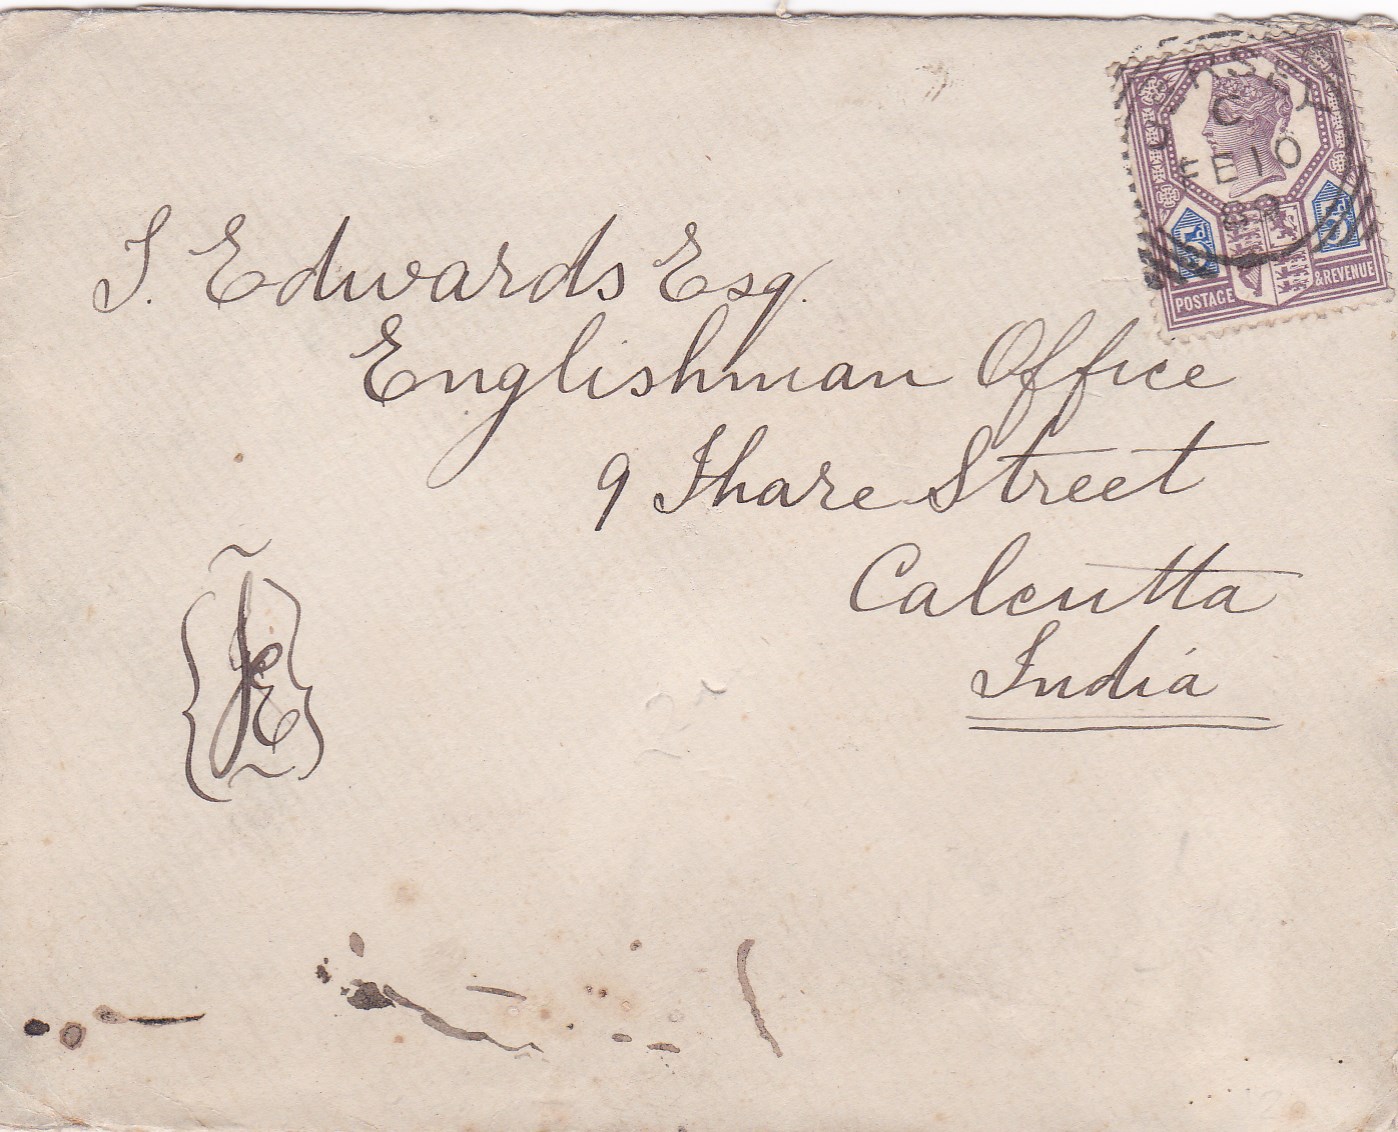 J. Edwards Esq.
Englishman Office
9 Hare Street
Calcutta
India
JE
C
FE 10
89
5d 5d
POSTAGE & REVENUE